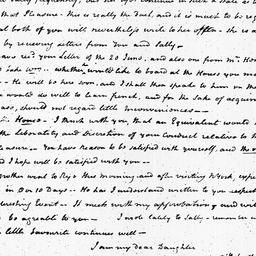 that Pleasure - this is really the Case, and it is much to be reg
at both of you will nevertheless write to her often - she is a
by receiving letters from You and Sally -
have rec'd your Letter of the 20 June, and also one from Mr
whether would like to board at the House you me
- He will be here soon, and I shall then speak to him on th
would do well to learn french, and for the Sake of acquir
should not regard little Inconveniences -
- I think with you, that an Equivalent would
the Liberality and Discretion of your Conduct relative to th
- You have reason to be satisfied with yourself, and the
I hope will be satisfied with you -
went to Rye this morning and after visiting
in 8 or 10 Days - He has I understand written to you respect
Event - It meets with my approbation, and wi
be agreable to you - I wrote lately to Sally - remember
little favourite continues well -
I am my dear Daughter